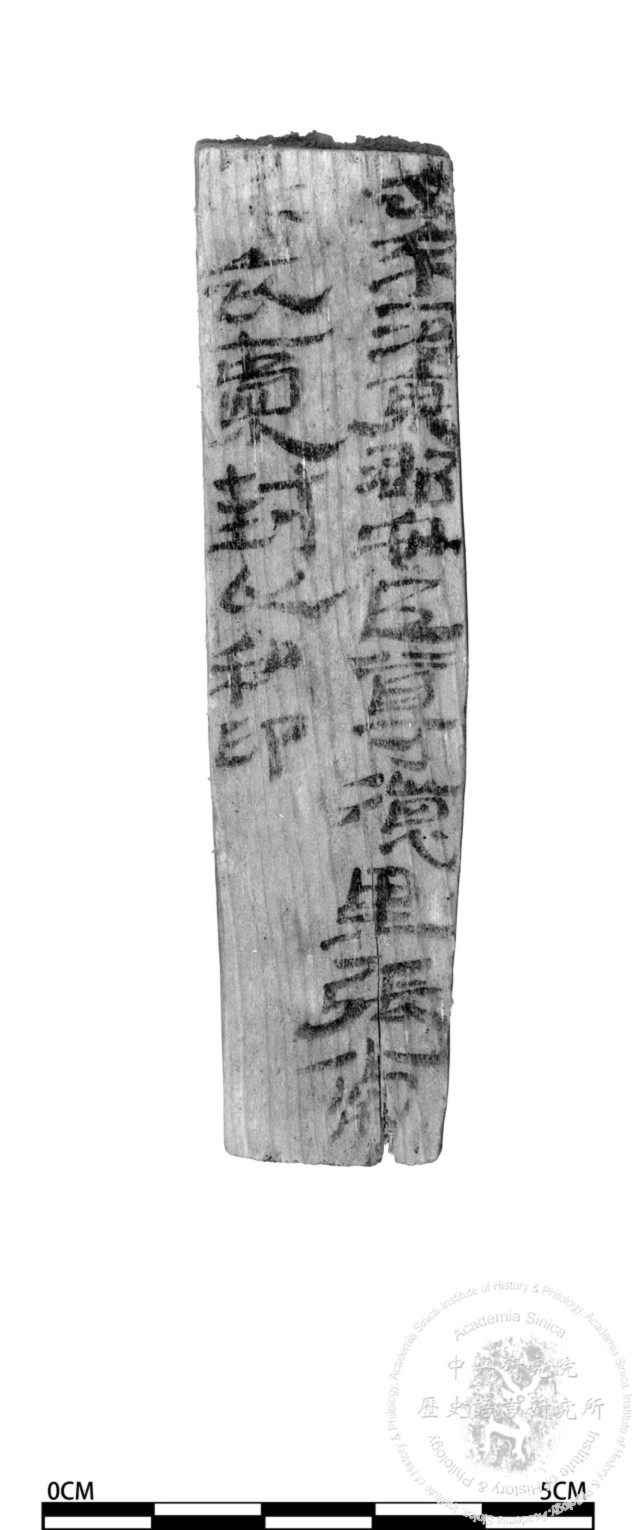 戍卒河東郡安邑尊德里張
衣橐封以私印
Academia Sinica
中央研究院
歷史語言研究所
Institute of History & Philology
0CM 5CM